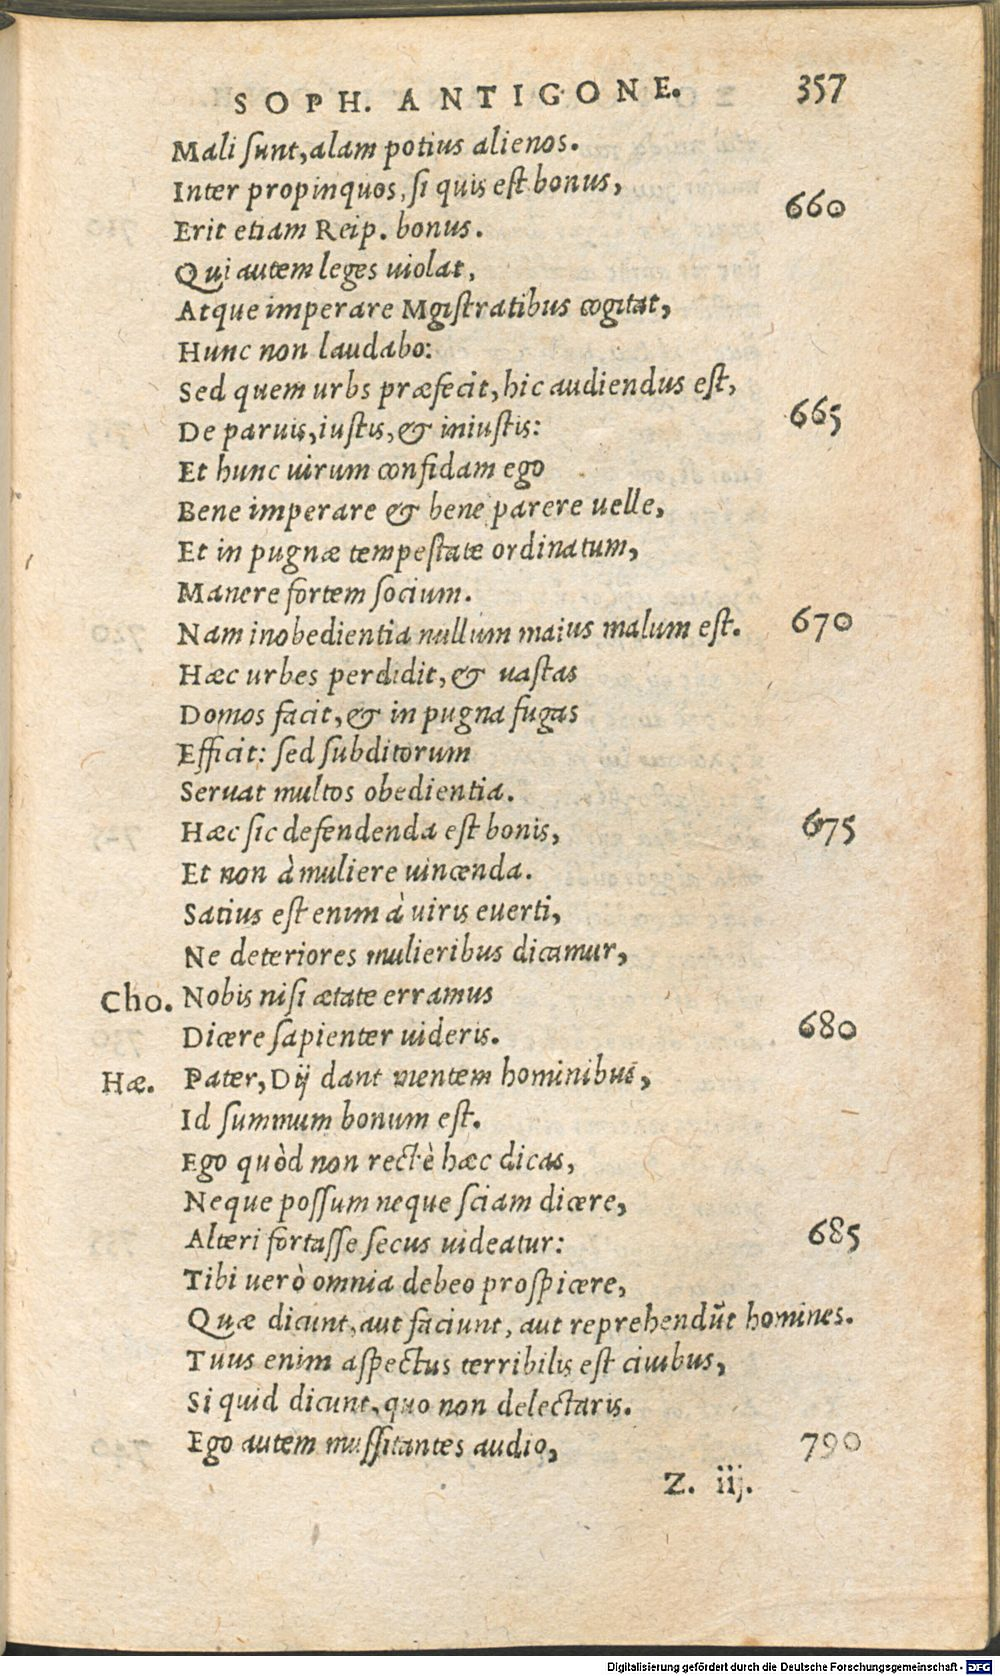 SOPH. ANTIGONE. 357
Mali sunt, alam potius alienos.
Inter propinquos, si quis est bonus, 660
Erit etiam Reip. bonus.
Qui autem leges uiolat,
Atque imperare Mgistratibus cogitat,
Hunc non laudabo:
Sed quem urbs præfecit, hic audiendus est,
De paruis, iustis, & iniustis: 665
Et hunc uirum confidam ego
Bene imperare & bene parere uelle,
Et in pugnæ tempestate ordinatum,
Manere fortem socium.
Nam inobedientia nullum maius malum est. 670
Hæc urbes perdidit, & uastas
Domos facit, & in pugna fugas
Efficit: sed subditorum
Seruat multos obedientia.
Hæc sic defendenda est bonis, 675
Et non à muliere uincenda.
Satius est enim à uiris euerti,
Ne deteriores mulieribus dicamur,
Cho. Nobis nisi ætate erramus
Dicere sapienter uideris. 680
Hæ. Pater, Dij dant mentem hominibus,
Id summum bonum est.
Ego quòd non rectè hæc dicas,
Neque possum neque sciam dicere,
Alteri fortasse secus uideatur: 685
Tibi uerò omnia debeo prospicere,
Quæ dicunt, aut faciunt, aut reprehendũt homines.
Tuus enim aspectus terribilis est ciuibus,
Si quid dicunt, quo non delectaris.
Ego autem mussitantes audio, 790
Z. iij.
Digitalisierung gefördert durch die Deutsche Forschungsgemeinschaft - DFG